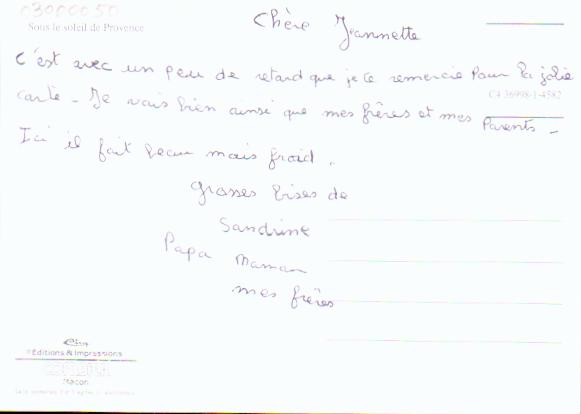 03000050
Sous le soleil de Provence
Chère Jeannette
C'est avec un peu de retard que je te remercie Pour ta jolie
carte - Je vais bien ainsi que mes frères et mes Parents -
C4 36998-1-4582
Ici il fait beau mais froid.
grosses bises de
Sandrine
Papa Maman
mes frères
Editions & Impressions
Macon